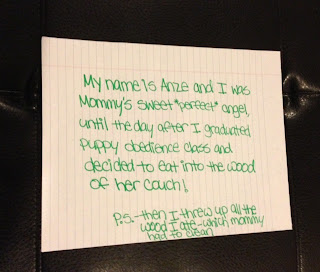 My name is Anze and I was
Mommy's sweet *perfect* angel,
until the day after I graduated
puppy obedience class and
decided to eat into the wood
of her couch!
P.S.-then I threw up all the
wood I ate-which mommy
had to clean